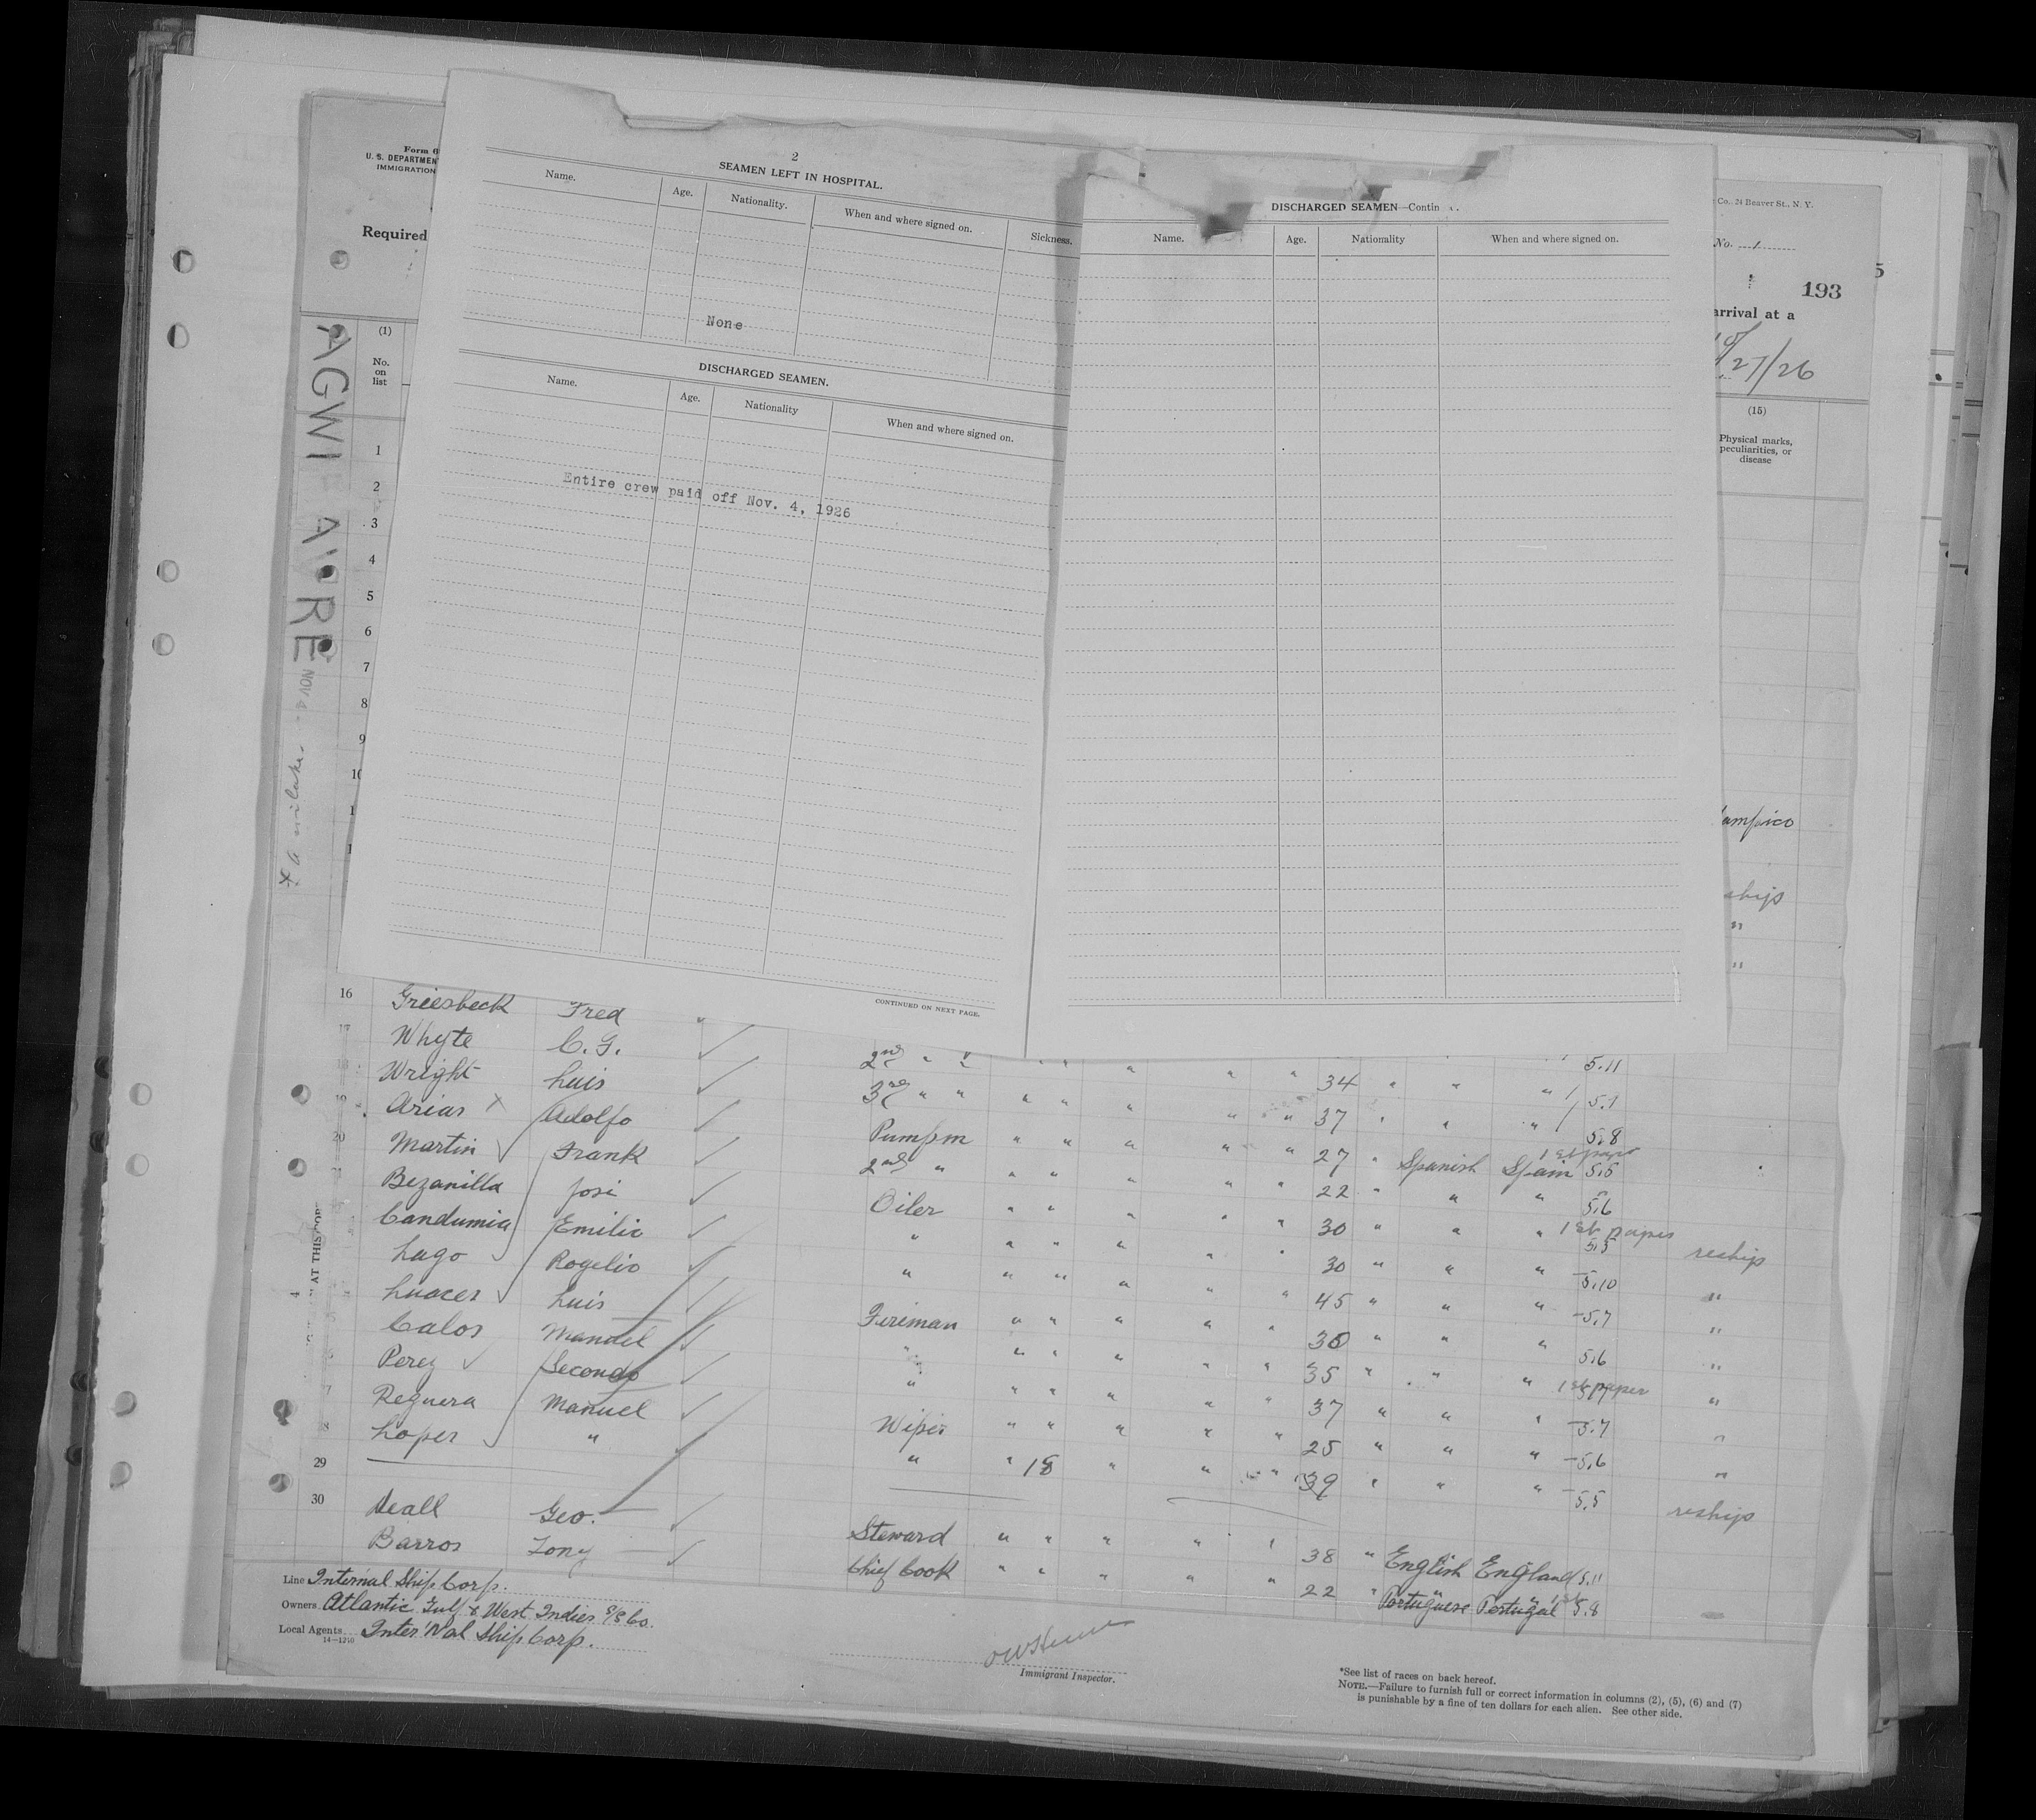 Form 6
U. S. DEPARTMENT
IMMIGRATION
Required
(1)
No.
on
list
1
2
3
4
5
6
7
8
9
10
1
1
AGWI
NOV 4
2
SEAMEN LEFT IN HOSPITAL.
Name. Age. Nationality. When and where signed on. Sickness.
None
DISCHARGED SEAMEN.
Name. Age. Nationality When and where signed on.
Entire crew paid off Nov. 4, 1926
CONTINUED ON NEXT PAGE.
DISCHARGED SEAMEN—Contin
Name. Age. Nationality When and where signed on.
Co. 24 Beaver St., N. Y.
No. 1
5
193
arrival at a
27/26
(15)
Physical marks,
peculiarities, or
disease
ampico
ships
"
"
16 Griesbeck Fred
17 Whyte C. G. 2nd " " " " " " " 5.11
Wright Luis 3rd " " " " " " " 34 " " " 5.7
19 Arias x Adolfo Pumpm " " " " " 37 " " " 5.8
20 Martin Frank 2nd " " " " " " 27 " Spanish Spain 1st paper 5.5
Bezanilla Jose Oiler " " " " " 22 " " " 5.6
Candumia Emilio " " " " " " 30 " " " 1st papers 5.5 reship
Lago Rogelio " " " " " " 30 " " " 5.10 "
Luaces Luis Fireman " " " " " 45 " " " 5.7 "
Calos Manuel " " " " " " 30 " " " 5.6 "
Perez Secondo " " " " " " 35 " " " 1st paper "
7 Reguera Manuel Wiper " " " " " 37 " " " 5.7 "
8 Lopez " " " 18 " " " 25 " " " 5.6 "
29 39 " " " 5.5 reship
30 Deall Geo. Steward " " " " " 38 " English England 5.11
Barros Tony Chief Cook " " " " " 22 " Portuguese Portugal 5.8
AT THIS POR
Line Internal Ship Corp.
Owners Atlantic Gulf & West Indies S/S Co.
Local Agents Inter'Nal Ship Corp.
14—1240
Immigrant Inspector.
*See list of races on back hereof.
NOTE.—Failure to furnish full or correct information in columns (2), (5), (6) and (7)
is punishable by a fine of ten dollars for each alien. See other side.